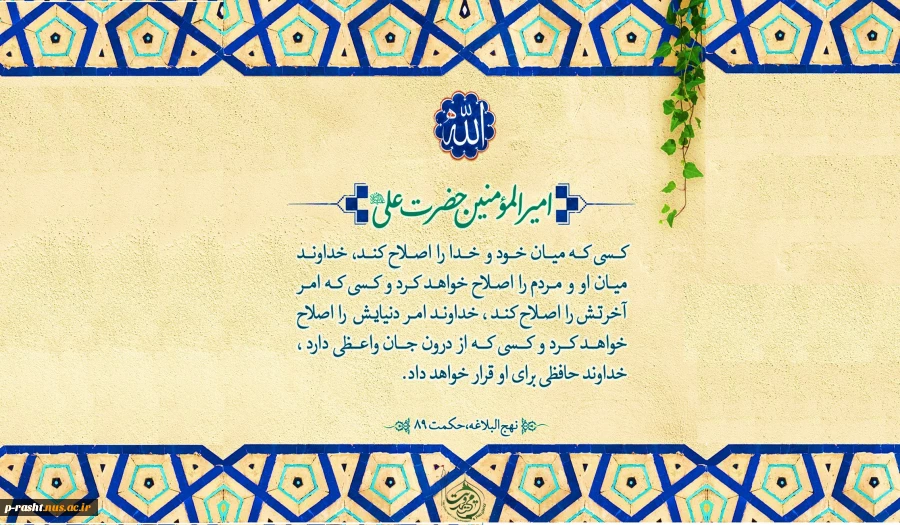 الله
امیرالمؤمنین حضرت علی
کسی که میان خود و خدا را اصلاح کند، خداوند
میان او و مردم را اصلاح خواهد کرد و کسی که امر
آخرتش را اصلاح کند، خداوند امر دنیایش را اصلاح
خواهد کرد و کسی که از درون جان واعظی دارد،
خداوند حافظی برای او قرار خواهد داد.
نهج البلاغه، حکمت ۸۹
p-rasht.nus.ac.ir